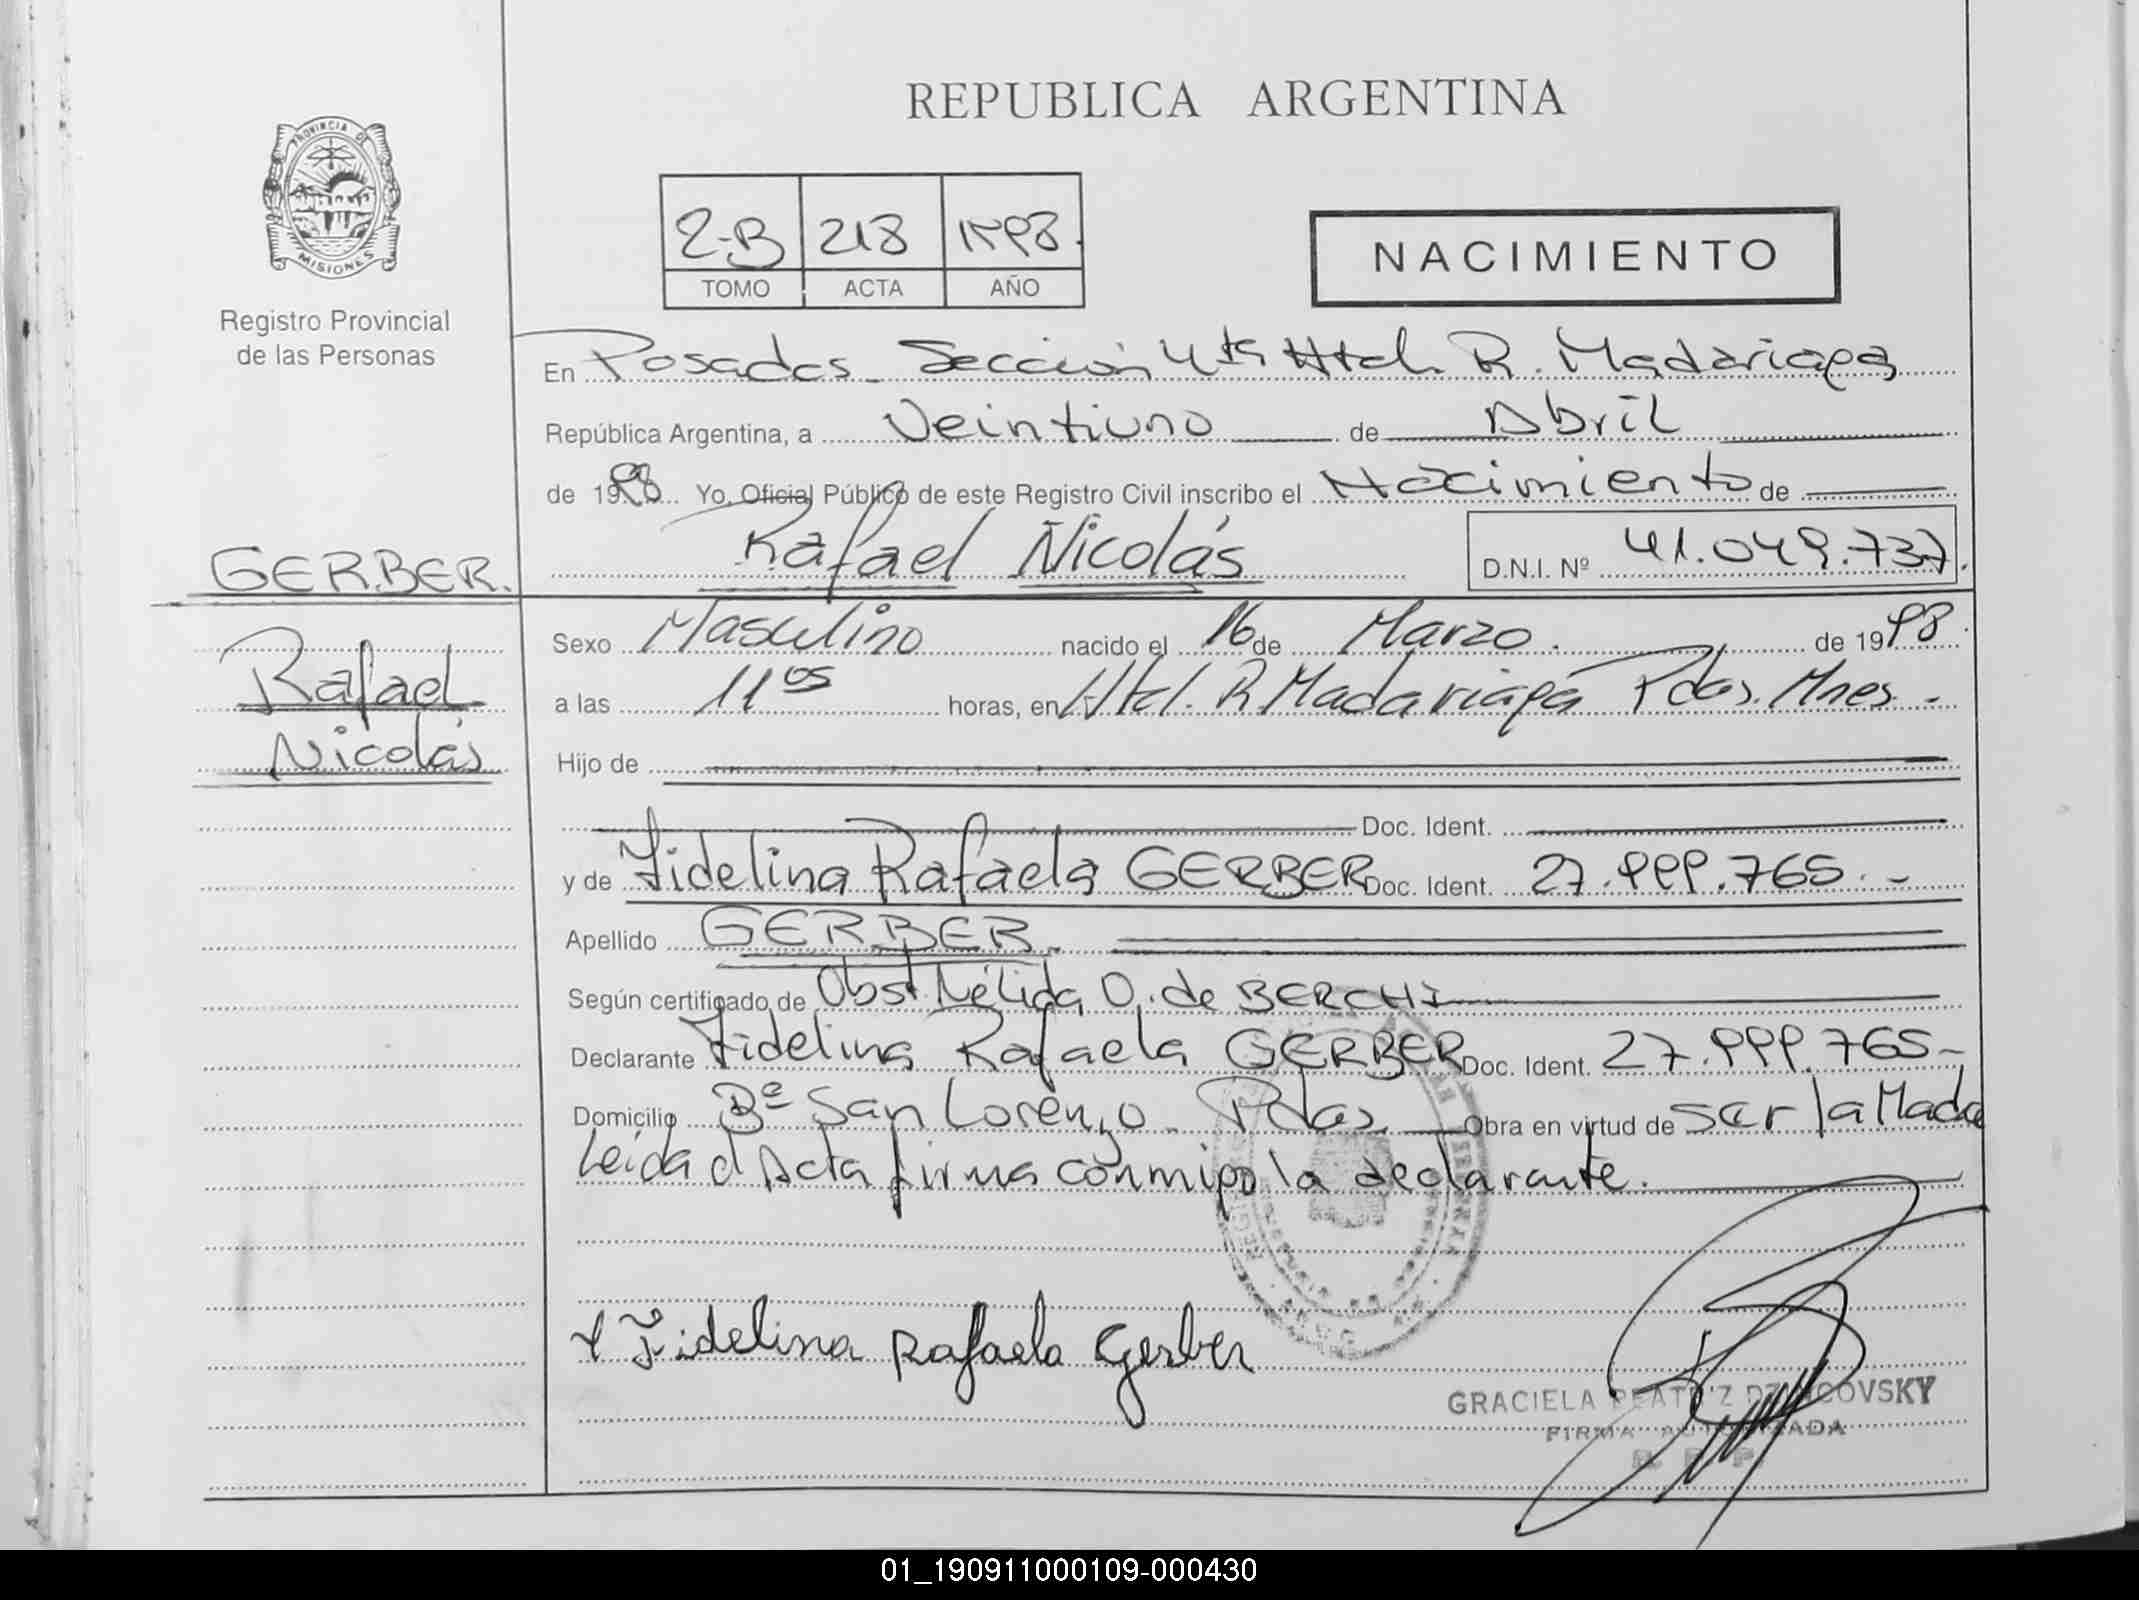 REPUBLICA ARGENTINA
PROVINCIA DE
MISIONES
Registro Provincial
de las Personas
2-B 218 1998
TOMO ACTA AÑO
NACIMIENTO
En Posadas - Sección 4ta Htal. R. Madariaga
República Argentina, a Veintiuno de Abril
de 1998 Yo, Oficial Público de este Registro Civil inscribo el Nacimiento de
Rafael Nicolás D.N.I. Nº 41.049.737.
GERBER.
Rafael
Nicolás
Sexo Masculino nacido el 16 de Marzo. de 1998.
a las 11 05 horas, en Htal. R. Madariaga Pdas. Mnes -
Hijo de
Doc. Ident.
y de Fidelina Rafaela GERBER Doc. Ident. 27.999.765.-
Apellido GERBER.
Según certificado de Obst. Nélida O. de BERCHI
Declarante Fidelina Rafaela GERBER Doc. Ident. 27.999.765-
Domicilio Bº San Lorenzo - Pdas. Obra en virtud de ser la Madre
Leída el Acta firma conmigo la declarante.
Fidelina Rafaela Gerber
GRACIELA BEATRIZ
FIRMA AUTORIZADA
R. P. P.
01_190911000109-000430